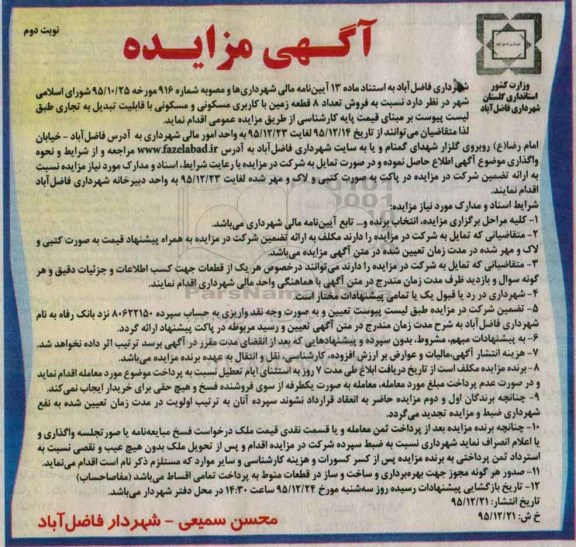 نوبت دوم
آگهی مزایده
وزارت کشور
استانداری گلستان
شهرداری فاضل‌آباد
شهرداری فاضل‌آباد به استناد ماده ۱۳ آیین‌نامه مالی شهرداری‌ها و مصوبه شماره ۹۱۶ مورخه ۹۵/۱۰/۲۵ شورای اسلامی
شهر در نظر دارد نسبت به فروش تعداد ۸ قطعه زمین با کاربری مسکونی و مسکونی با قابلیت تبدیل به تجاری طبق
لیست پیوست بر مبنای قیمت پایه کارشناسی از طریق مزایده عمومی اقدام نماید.
لذا متقاضیان می‌توانند از تاریخ ۹۵/۱۲/۱۴ لغایت ۹۵/۱۲/۲۳ به واحد امور مالی شهرداری به آدرس فاضل‌آباد - خیابان
امام رضا(ع) روبروی گلزار شهدای گمنام و یا به سایت شهرداری فاضل‌آباد به آدرس www.fazelabad.ir مراجعه و از شرایط و نحوه
واگذاری موضوع آگهی اطلاع حاصل نموده و در صورت تمایل به شرکت در مزایده با رعایت شرایط، اسناد و مدارک مورد نیاز مزایده نسبت
به ارائه تضمین شرکت در مزایده در پاکت به صورت کتبی و لاک و مهر شده لغایت ۹۵/۱۲/۲۳ به واحد دبیرخانه شهرداری فاضل‌آباد
اقدام نمایند.
شرایط اسناد و مدارک مورد نیاز مزایده:
۱- کلیه مراحل برگزاری مزایده، انتخاب برنده و... تابع آیین‌نامه مالی شهرداری می‌باشد.
۲- متقاضیانی که تمایل به شرکت در مزایده را دارند مکلف به ارائه تضمین شرکت در مزایده به همراه پیشنهاد قیمت به صورت کتبی و
لاک و مهر شده در مدت زمان تعیین شده در متن آگهی مزایده می‌باشند.
۳- متقاضیانی که تمایل به شرکت در مزایده را دارند می‌توانند درخصوص هر یک از قطعات جهت کسب اطلاعات و جزئیات دقیق و هر
گونه سوال و بازدید ظرف مدت زمان مندرج در متن آگهی با هماهنگی واحد مالی شهرداری اقدام نمایند.
۴- شهرداری در رد یا قبول یک یا تمامی پیشنهادات مختار است.
۵- تضمین شرکت در مزایده طبق لیست پیوست تعیین و به صورت وجه نقد واریزی به حساب سپرده ۸۰۶۲۲۱۵۰ نزد بانک رفاه به نام
شهرداری فاضل‌آباد به شرح مدت زمان مندرج در متن آگهی تعیین و رسید مربوطه در پاکت پیشنهاد ارائه گردد.
۶- به پیشنهادات مبهم، مشروط، بدون سپرده و پیشنهادهایی که بعد از انقضای مدت مقرر در آگهی برسد ترتیب اثر داده نخواهد شد.
۷- هزینه انتشار آگهی، مالیات و عوارض بر ارزش افزوده، کارشناسی، نقل و انتقال به عهده برنده مزایده می‌باشد.
۸- برنده مزایده مکلف است از تاریخ دریافت ابلاغ طی مدت ۷ روز به استثنای ایام تعطیل نسبت به پرداخت موضوع مورد معامله اقدام نماید
و در صورت عدم پرداخت مبلغ مورد معامله، معامله به صورت یکطرفه از سوی فروشنده فسخ و هیچ حقی برای خریدار ایجاب نمی‌کند.
۹- چنانچه برندگان اول و دوم مزایده حاضر به انعقاد قرارداد نشوند سپرده آنان به ترتیب اولویت در مدت زمان تعیین شده به نفع
شهرداری ضبط و مزایده تجدید می‌گردد.
۱۰- چنانچه برنده مزایده بعد از پرداخت ثمن معامله و یا قسمت نقدی قیمت ملک درخواست فسخ مبایعه‌نامه یا صورتجلسه واگذاری و
یا اعلام انصراف نماید شهرداری نسبت به ضبط سپرده شرکت در مزایده اقدام و پس از تحویل ملک بدون هیچ عیب و نقصی نسبت به
استرداد ثمن پرداختی به برنده مزایده پس از کسر کسورات و هزینه کارشناسی و سایر موارد که مستلزم ذکر نام است اقدام می‌نماید.
۱۱- صدور هر گونه مجوز جهت بهره‌برداری و ساخت و ساز در قطعات منوط به پرداخت تمامی اقساط می‌باشد (مفاصاحساب)
۱۲- تاریخ بازگشایی پیشنهادات رسیده روز سه‌شنبه مورخ ۹۵/۱۲/۲۴ ساعت ۱۴:۳۰ در محل دفتر شهردار می‌باشد.
تاریخ انتشار: ۹۵/۱۲/۲۱
خ ش: ۹۵/۱۲/۲۱
محسن سمیعی - شهردار فاضل‌آباد